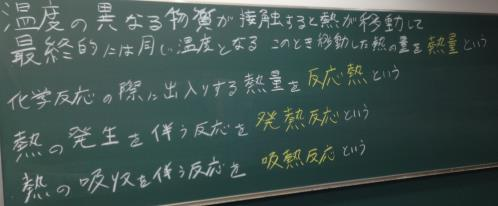 温度の異なる物質が接触すると熱が移動して
最終的には同じ温度となる このとき移動した熱の量を熱量という
化学反応の際に出入りする熱量を反応熱という
熱の発生を伴う反応を発熱反応という
熱の吸収を伴う反応を吸熱反応という